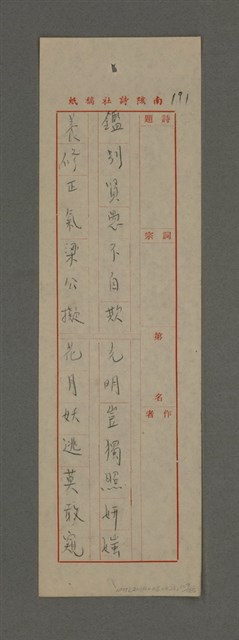 南陔詩社稿紙
191
詩題
詞宗
第名
作者
鑑別賢愚不自欺光明豈獨照妍媸
養修正氣梁公擬花月妖逃莫敢窺